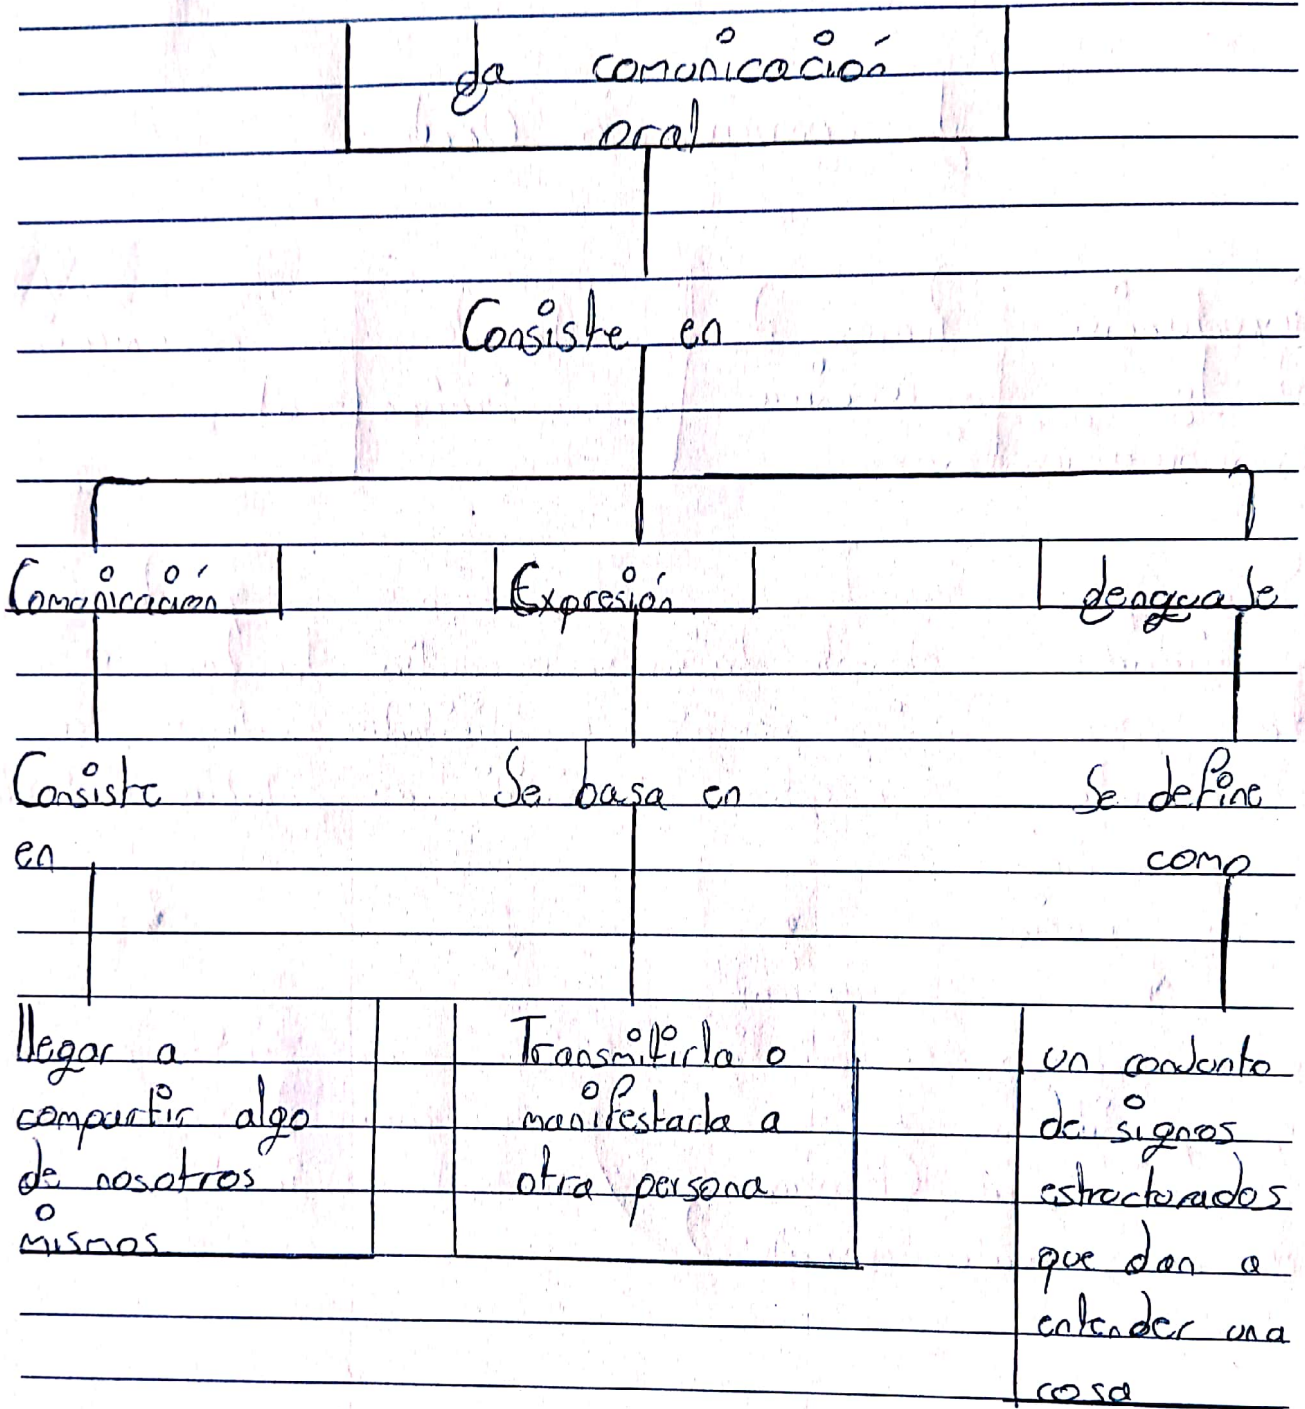 La comunicación
oral
Consiste en
Comunicación
Expresión
Lenguaje
Consiste
en
Se basa en
Se define
como
llegar a
compartir algo
de nosotros
mismos
Transmitirla o
manifestarla a
otra persona
un conjunto
de signos
estructurados
que dan a
entender una
cosa